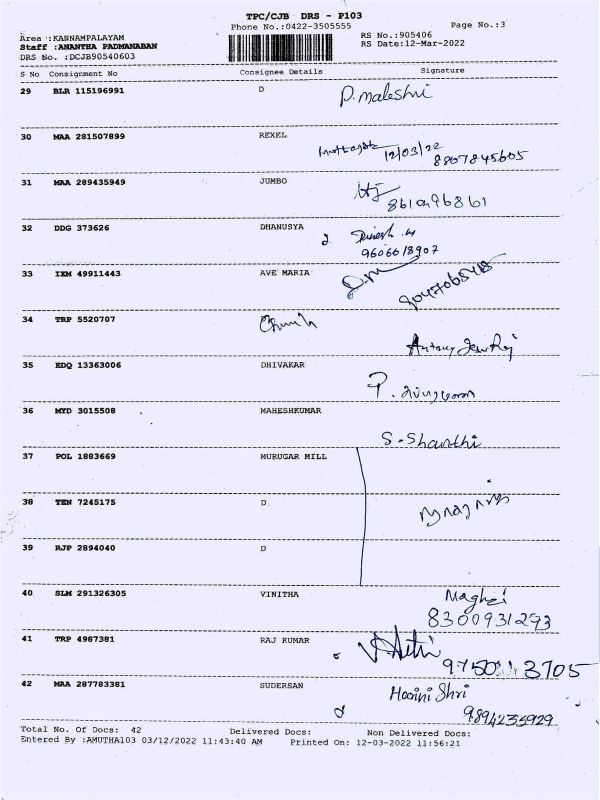 TPC/CJB DRS - P103
Phone No.:0422-3505555
Page No.:3
Area :KANNAMPALAYAM
Staff :ANANTHA PADMANABAN
DRS No. :DCJB90540603
RS No.:905406
RS Date:12-Mar-2022
S No Consignment No Consignee Details Signature
29 BLR 115196991 D P. maleshri
30 MAA 281507899 REXEL
12/03/22
8807845605
31 MAA 289435949 JUMBO
8610996861
32 DDG 373626 DHANUSYA Dinesh. M
9606618907
33 IXM 49911443 AVE MARIA
9047065418
34 TRP 5520707 Church
Antony Jesu Raj
35 EDQ 13363006 DHIVAKAR
36 MYD 3015508 MAHESHKUMAR
S. Shanthi
37 POL 1883669 MURUGAR MILL
38 TEN 7245175 D
39 RJP 2894040 D
40 SLM 291326305 VINITHA
8300931293
41 TRP 4987381 RAJ KUMAR
9750113705
42 MAA 287783381 SUDERSAN Harini Shri
9894235929
Total No. Of Docs: 42 Delivered Docs: Non Delivered Docs:
Entered By :AMUTHA103 03/12/2022 11:43:40 AM Printed On: 12-03-2022 11:56:21